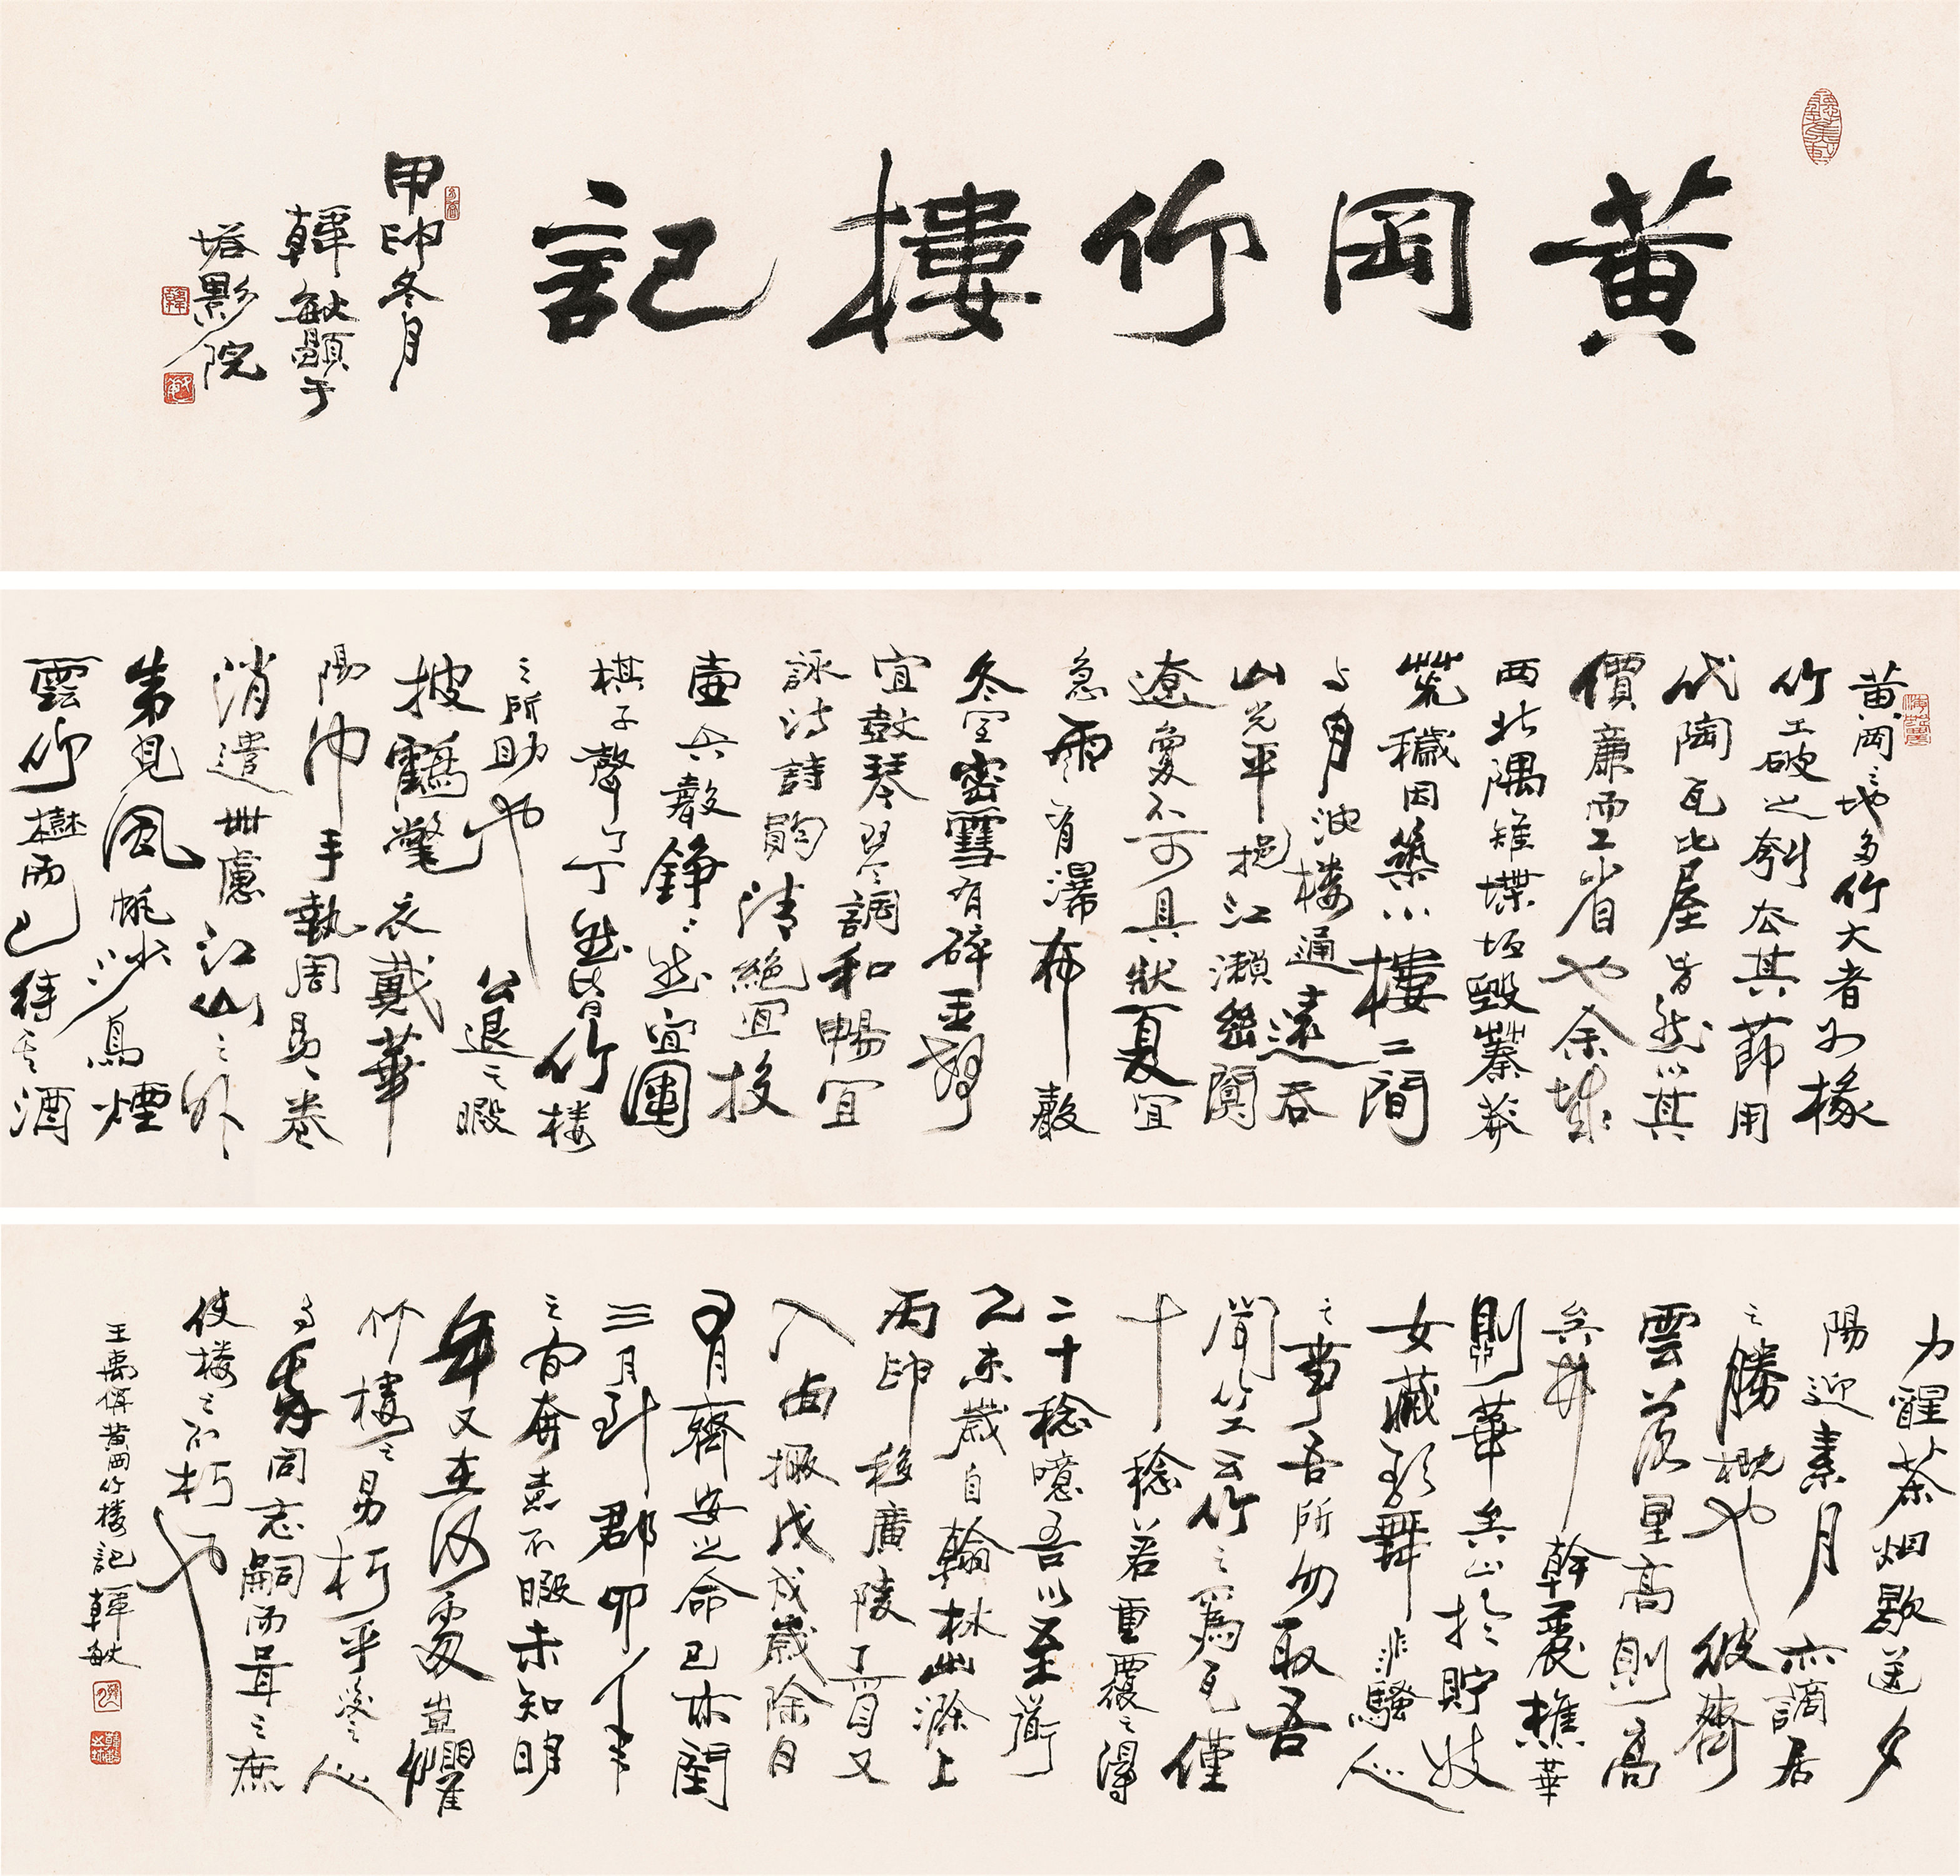 黃岡竹樓記
甲申冬月
韓敏題于
塔影院
黃岡之地多竹大者如椽
竹工破之刳去其節用
代陶瓦比屋皆然以其
價廉而工省也余城
西北隅雉堞圮毀蓁莽
荒穢因築小樓二間
与月波楼通遠吞
山光平挹江瀨幽闃
遼夐不可具狀夏宜
急雨有瀑布聲
冬宜密雪有碎玉聲
宜鼓琴琴調和暢宜
詠詩詩韵清絕宜投
壺矢聲錚錚然宜圍
棋子聲丁丁然皆竹楼
之所助也公退之暇
披鶴氅衣戴華
陽巾手執周易一卷
消遣世慮江山之外
第見風帆沙鳥煙
雲竹樹而已待其酒
力醒茶烟歇送夕
陽迎素月亦謫居
之勝概也彼齊
雲落星高則高
矣井幹麗譙華
則華矣止於貯妓
女藏歌舞非騷人
之事吾所勿取吾
聞竹工云竹之為瓦僅
十稔若重覆之得
二十稔噫吾以至道
乙未歲自翰林出滁上
丙申移廣陵丁酉又
入西掖戊戌歲除日
有齊安之命己亥閏
三月到郡四年
之間奔走不暇未知明
年又在何處豈懼
竹樓之易朽乎後之人
与我同志嗣而葺之庶
使楼之不朽也
王禹偁黃岡竹楼記韓敏